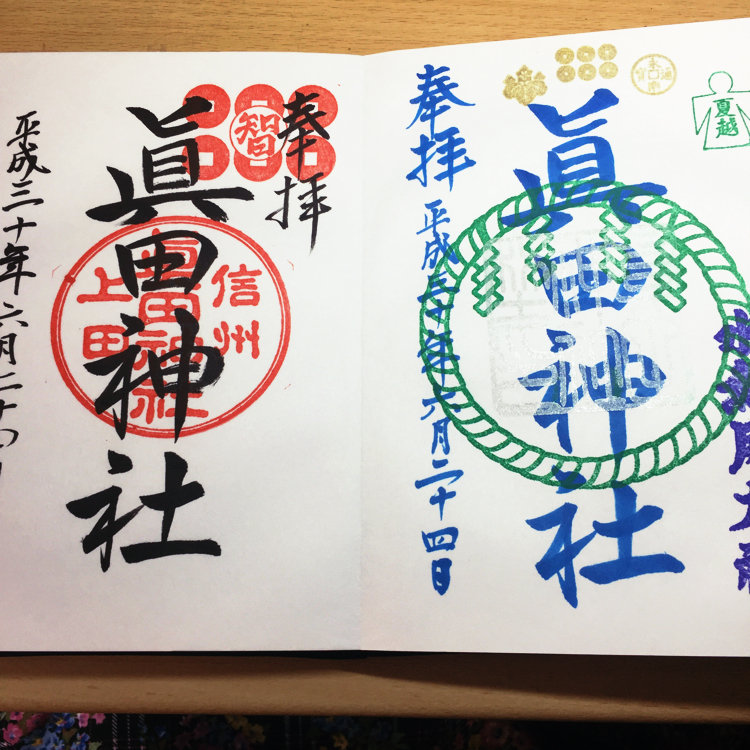 奉拝
智
眞田神社
信州
眞田神社
上田
平成三十年六月二十四日
夏越
眞田神社
奉拝
平成三十年六月二十四日